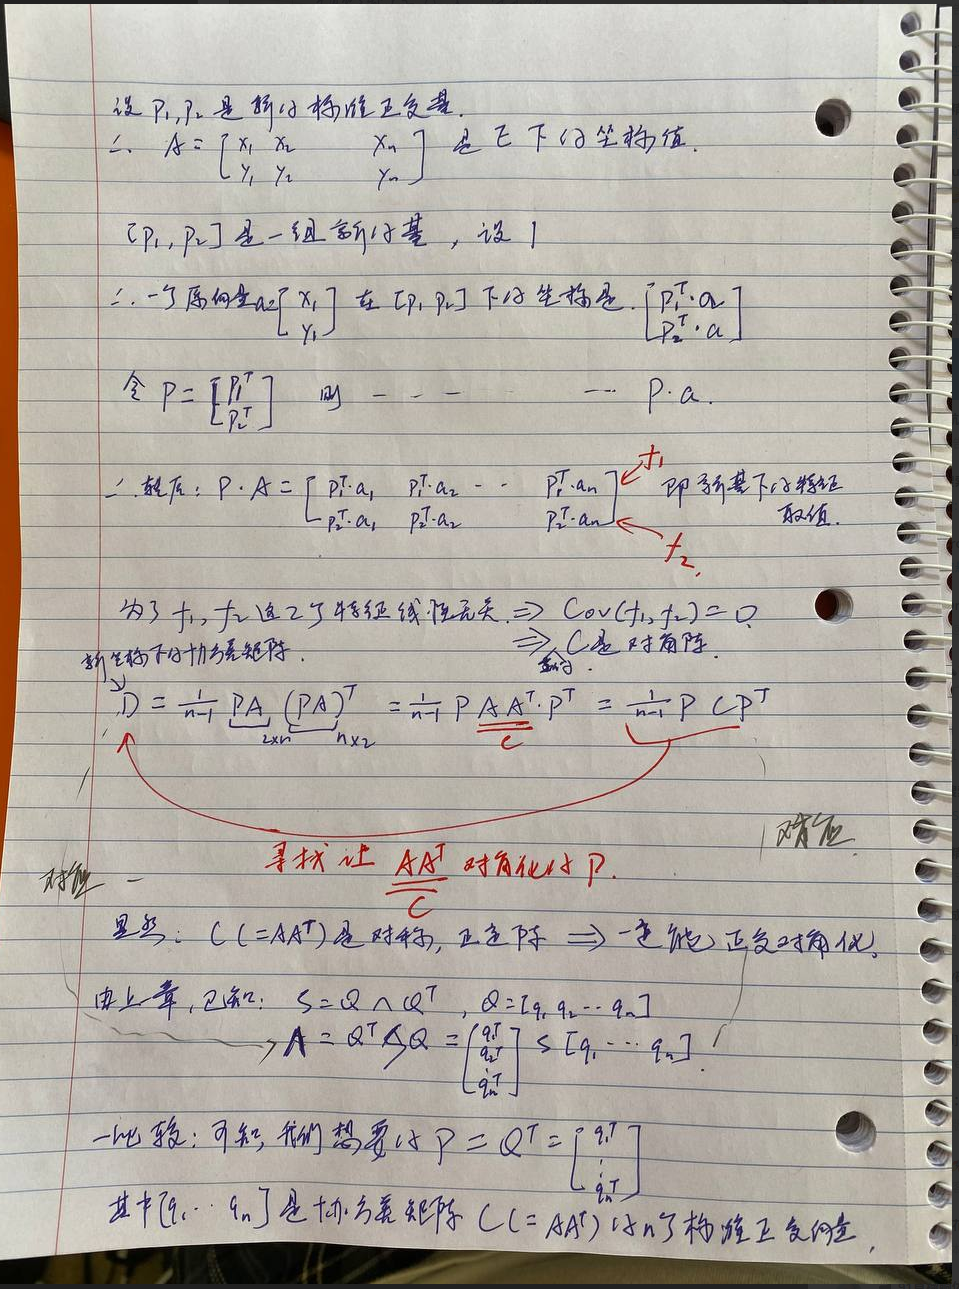 设 P₁, P₂ 是新的标准正交基.
∴ A = [x₁ x₂ xₙ; y₁ y₂ yₙ] 是 E 下的坐标值.
[P₁, P₂] 是一组新的基, 设 1
∴ 一个原向量 a = [x₁; y₁] 在 [P₁ P₂] 下的坐标是. [P₁ᵀ·a; P₂ᵀ·a]
令 P = [P₁ᵀ; P₂ᵀ] 则 - - - - ··· P·a.
∴ 转后: P·A = [P₁ᵀ·a₁ P₁ᵀ·a₂ - - P₁ᵀ·aₙ; P₂ᵀ·a₁ P₂ᵀ·a₂ P₂ᵀ·aₙ] f₁ f₂. 即新基下的特征取值.
为了 f₁, f₂ 这2个特征线性无关. ⇒ Cov(f₁, f₂) = 0.
新坐标下的协方差矩阵. ⇒ C是对角阵.
D = 1/(n-1) PA (PA)ᵀ = 1/(n-1) P AAᵀ·Pᵀ = 1/(n-1) P C Pᵀ
2×n n×2 C
寻找让 AAᵀ 对角化的 P.
C
对应
对应 -
显然: C (=AAᵀ) 是对称, 正定阵 ⇒ 一定能正交对角化.
由上章, 已知: S = Q Λ Qᵀ , Q = [q₁ q₂ ·· qₙ]
Λ = QᵀSQ = [q₁ᵀ; q₂ᵀ; ⋮; qₙᵀ] S [q₁ ··· qₙ] .
一比较: 可知, 我们想要的 P = Qᵀ = [q₁ᵀ; ⋮; qₙᵀ]
其中 [q₁ ·· qₙ] 是协方差矩阵 C (=AAᵀ) 的n个标准正交向量.